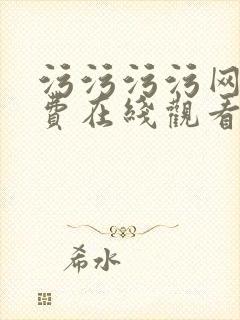 污污污污网
费在线观看
希水